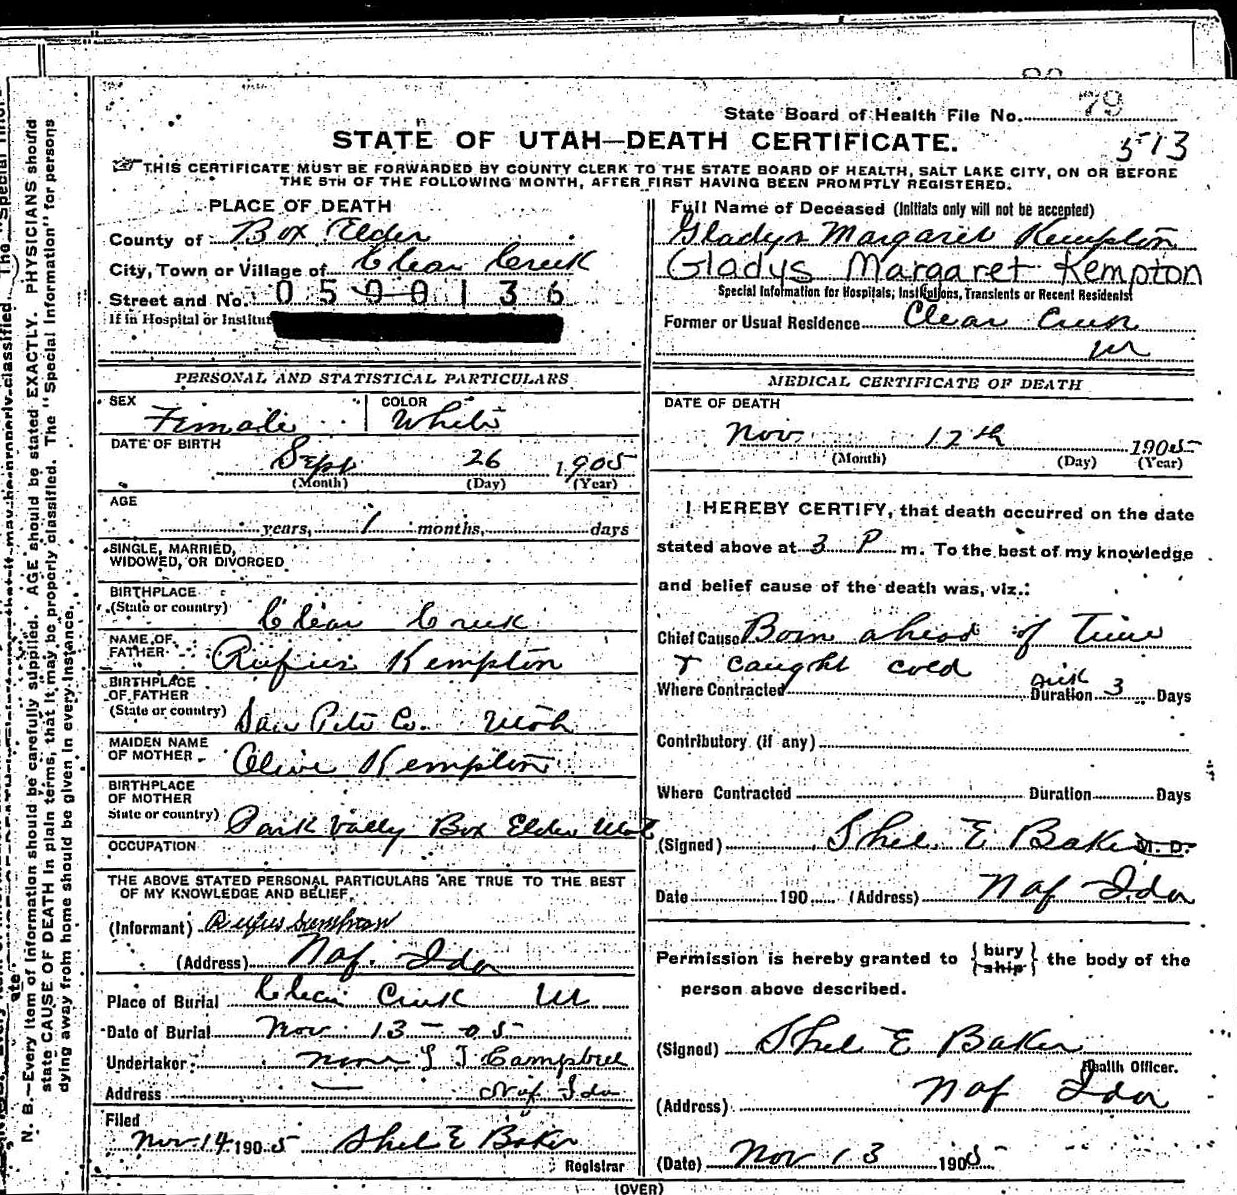 State Board of Health File No. 79
STATE OF UTAH—DEATH CERTIFICATE.
513
THIS CERTIFICATE MUST BE FORWARDED BY COUNTY CLERK TO THE STATE BOARD OF HEALTH, SALT LAKE CITY, ON OR BEFORE
THE 5TH OF THE FOLLOWING MONTH, AFTER FIRST HAVING BEEN PROMPTLY REGISTERED.
PLACE OF DEATH
County of Box Elder
City, Town or Village of Clear Creek
Street and No. 0500136
If in Hospital or Institut
Full Name of Deceased (Initials only will not be accepted)
Gladys Margaret Kempton
Gladys Margaret Kempton
Special Information for Hospitals, Institutions, Transients or Recent Residents
Former or Usual Residence Clear Creek
Ut
PERSONAL AND STATISTICAL PARTICULARS
SEX Female COLOR White
DATE OF BIRTH
Sept 26 1905
(Month) (Day) (Year)
AGE
years, 1 months, days
SINGLE, MARRIED,
WIDOWED, OR DIVORCED
BIRTHPLACE
(State or country) Clear Creek
NAME OF
FATHER Rufus Kempton
BIRTHPLACE
OF FATHER
(State or country) San Pete Co. Utah
MAIDEN NAME
OF MOTHER Olive Kempton
BIRTHPLACE
OF MOTHER
State or country) Park Vally Box Elder Utah
OCCUPATION
THE ABOVE STATED PERSONAL PARTICULARS ARE TRUE TO THE BEST
OF MY KNOWLEDGE AND BELIEF.
(Informant) Rufus
(Address) Naf. Ida
Place of Burial Clear Creek Ut
Date of Burial Nov 13-05
Undertaker none L J Campbell
Address — Naf Ida
Filed
Nov 14 1905 Shel E Baker
Registrar
MEDICAL CERTIFICATE OF DEATH
DATE OF DEATH
Nov 12th 1905
(Month) (Day) (Year)
I HEREBY CERTIFY, that death occurred on the date
stated above at 3 P m. To the best of my knowledge
and belief cause of the death was, viz.:
Chief Cause Born ahead of Time
& caught cold sick
Where Contracted Duration 3 Days
Contributory (if any)
Where Contracted Duration Days
(Signed) Shel. E Baker M. D.
Date 190 (Address) Naf Ida
Permission is hereby granted to {bury ship} the body of the
person above described.
(Signed) Shel E Baker
Health Officer.
(Address) Naf Ida
(Date) Nov 13 1905
(OVER)
N. B.—Every item of information should be carefully supplied. AGE should be stated EXACTLY. PHYSICIANS should
state CAUSE OF DEATH in plain terms, that it may be properly classified. The "Special Information" for persons
dying away from home should be given in every instance.